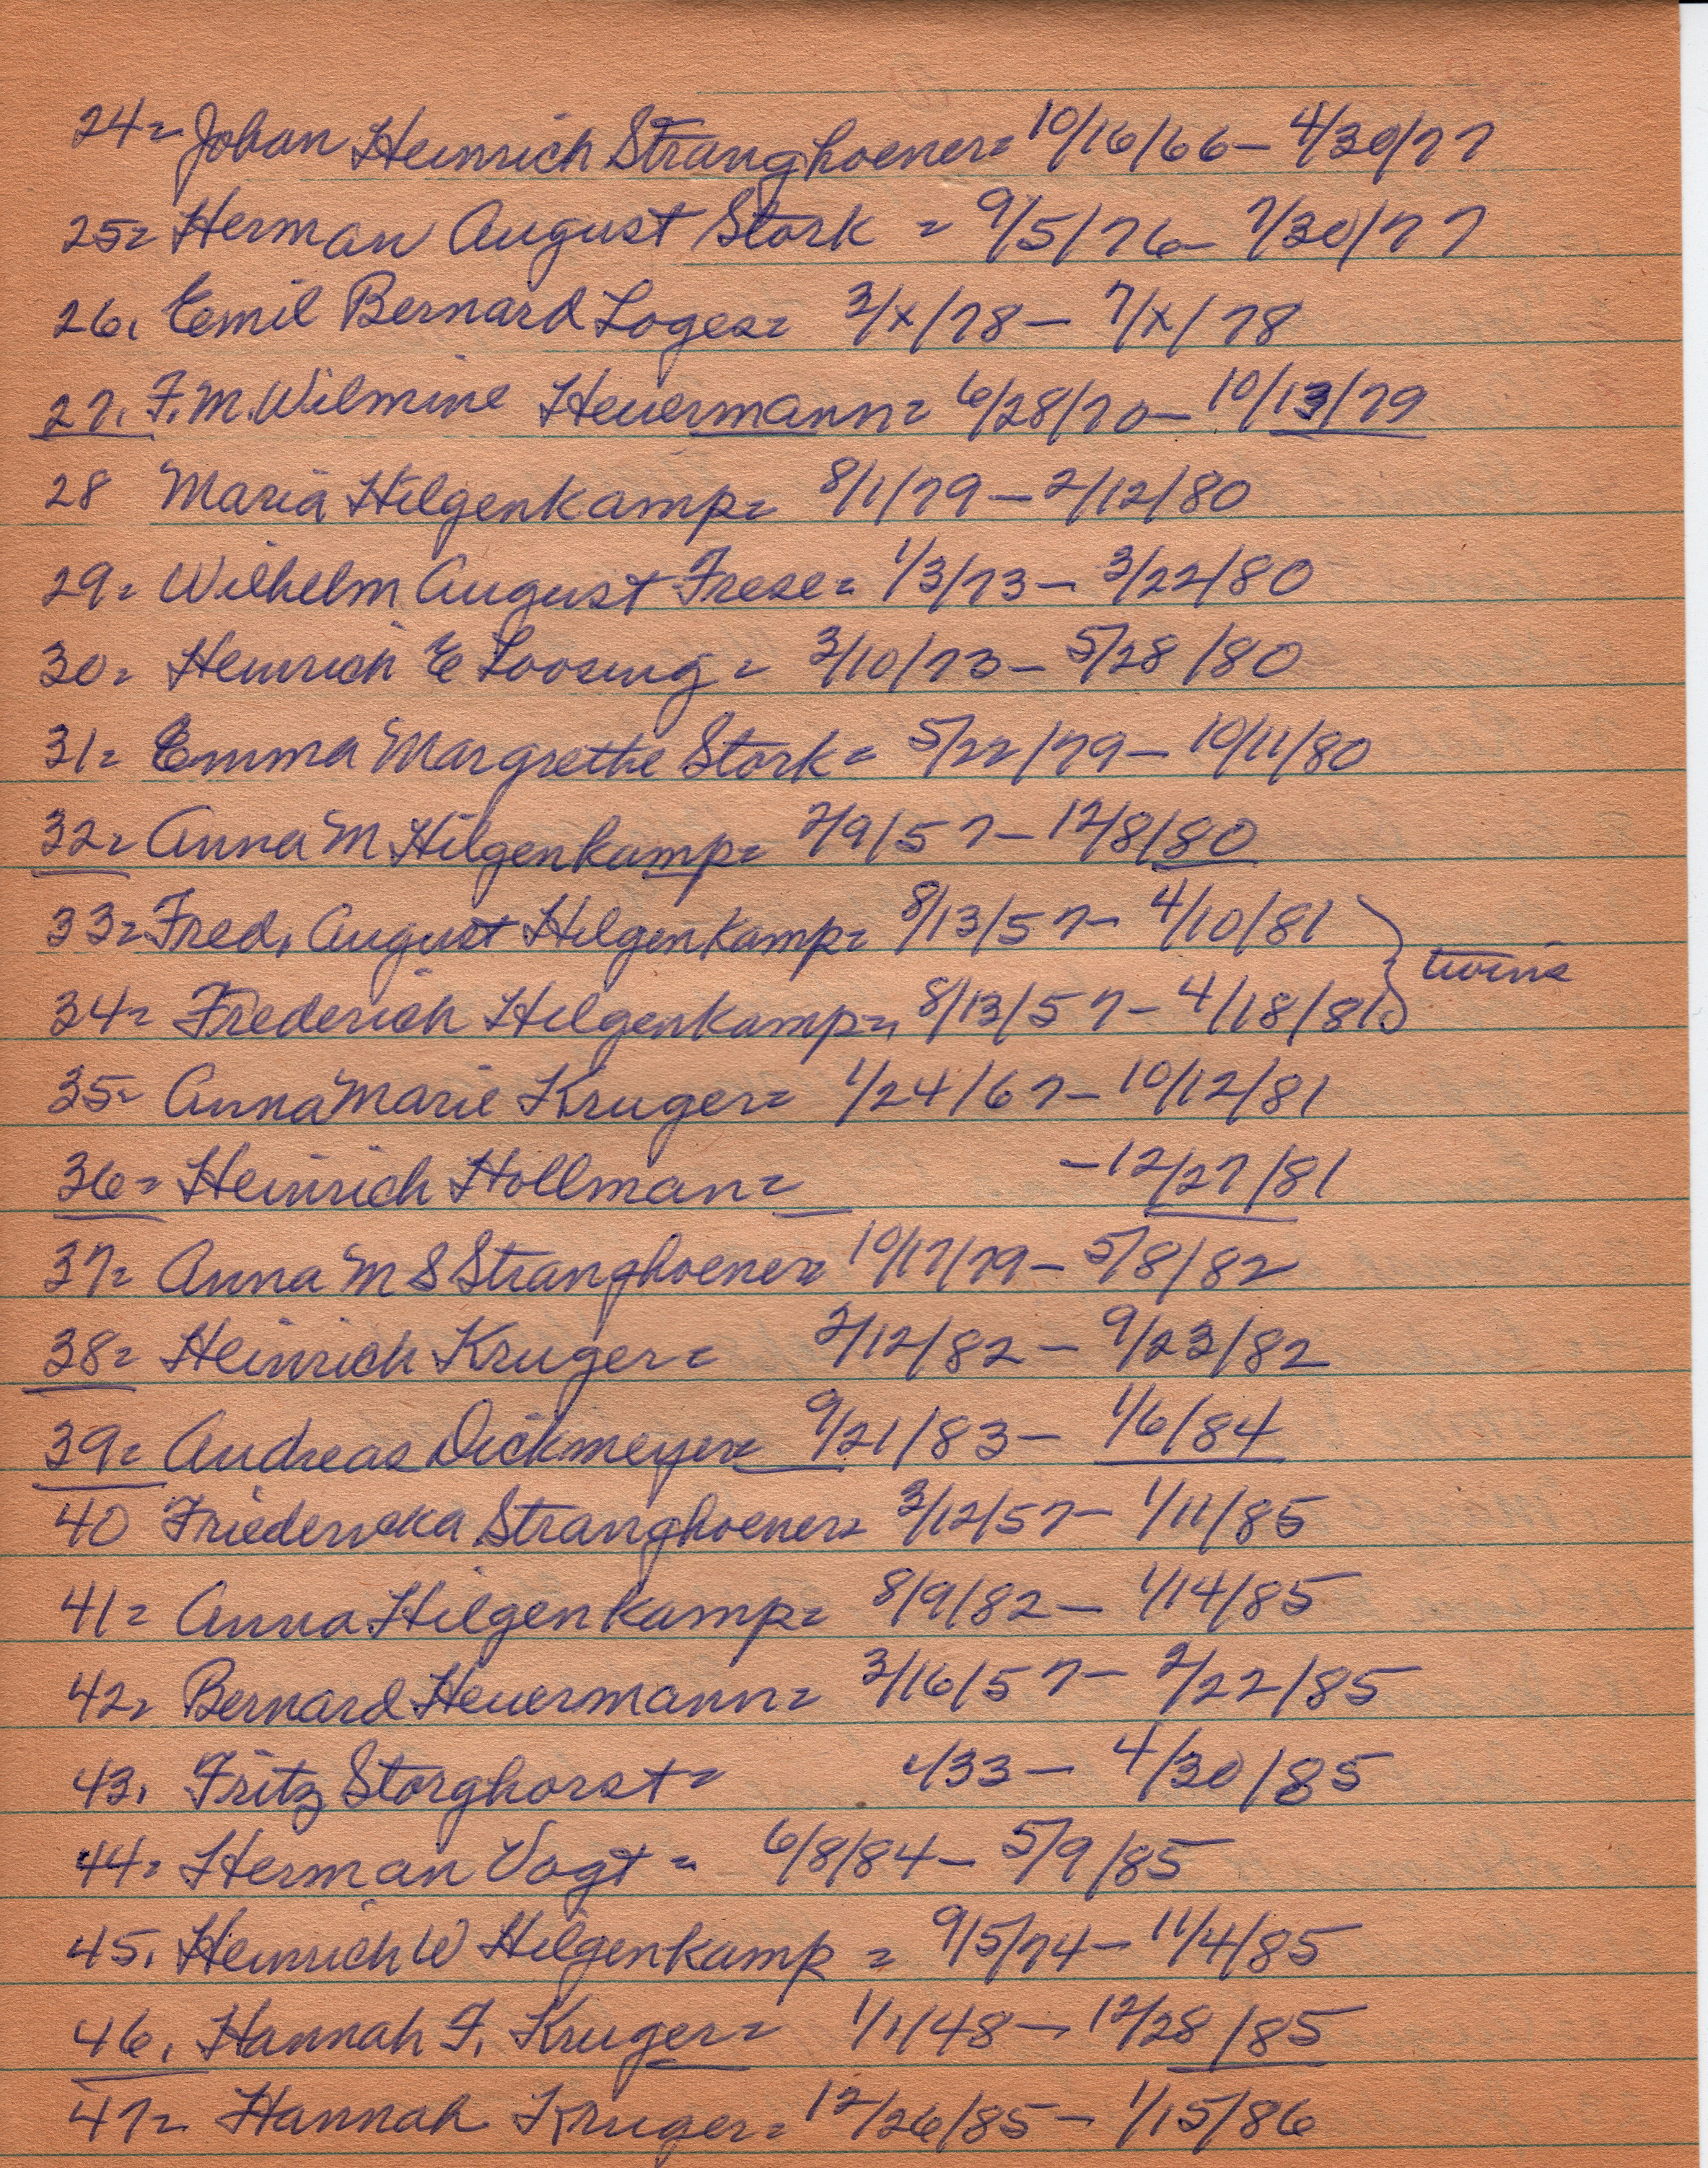 24= Johan Heinrich Stranghoener= 10/16/66- 4/30/77
25= Herman August Stork = 9/5/76- 7/30/77
26. Emil Bernard Loges= 3/x/78- 7/x/78
27. F.M. Wilmine Heuermann= 6/28/70- 10/13/79
28 Maria Hilgenkamp= 8/1/79- 2/12/80
29= Wilhelm August Frese= 1/3/73- 3/22/80
30= Heinrich E Loosing= 3/10/73- 5/28/80
31= Emma Margrethe Stork= 5/22/79- 10/11/80
32= Anna M Hilgenkamp= 2/9/57- 12/8/80
33= Fred. August Hilgenkamp= 8/13/57- 4/10/81
twins
34= Frederich Hilgenkamp= 8/13/57- 4/18/81
35= Anna Marie Kruger= 1/24/67- 10/12/81
36= Heinrich Hollman= -12/27/81
37= Anna M S Stranghoener= 10/17/79- 5/8/82
38= Heinrich Kruger= 2/12/82- 9/23/82
39= Andreas Dickmeyer= 9/21/83- 1/6/84
40 Friedericka Stranghoener= 3/12/57- 1/11/85
41= Anna Hilgenkamp= 8/9/82- 1/14/85
42= Bernard Heuermann= 3/16/57- 2/22/85
43. Fritz Storghorst= /33- 4/30/85
44= Herman Vogt= 6/8/84- 5/9/85
45. Heinrich W Hilgenkamp = 9/5/74- 11/4/85
46. Hannah F. Kruger= 1/1/48- 12/28/85
47= Hannah Kruger= 12/26/85- 1/15/86